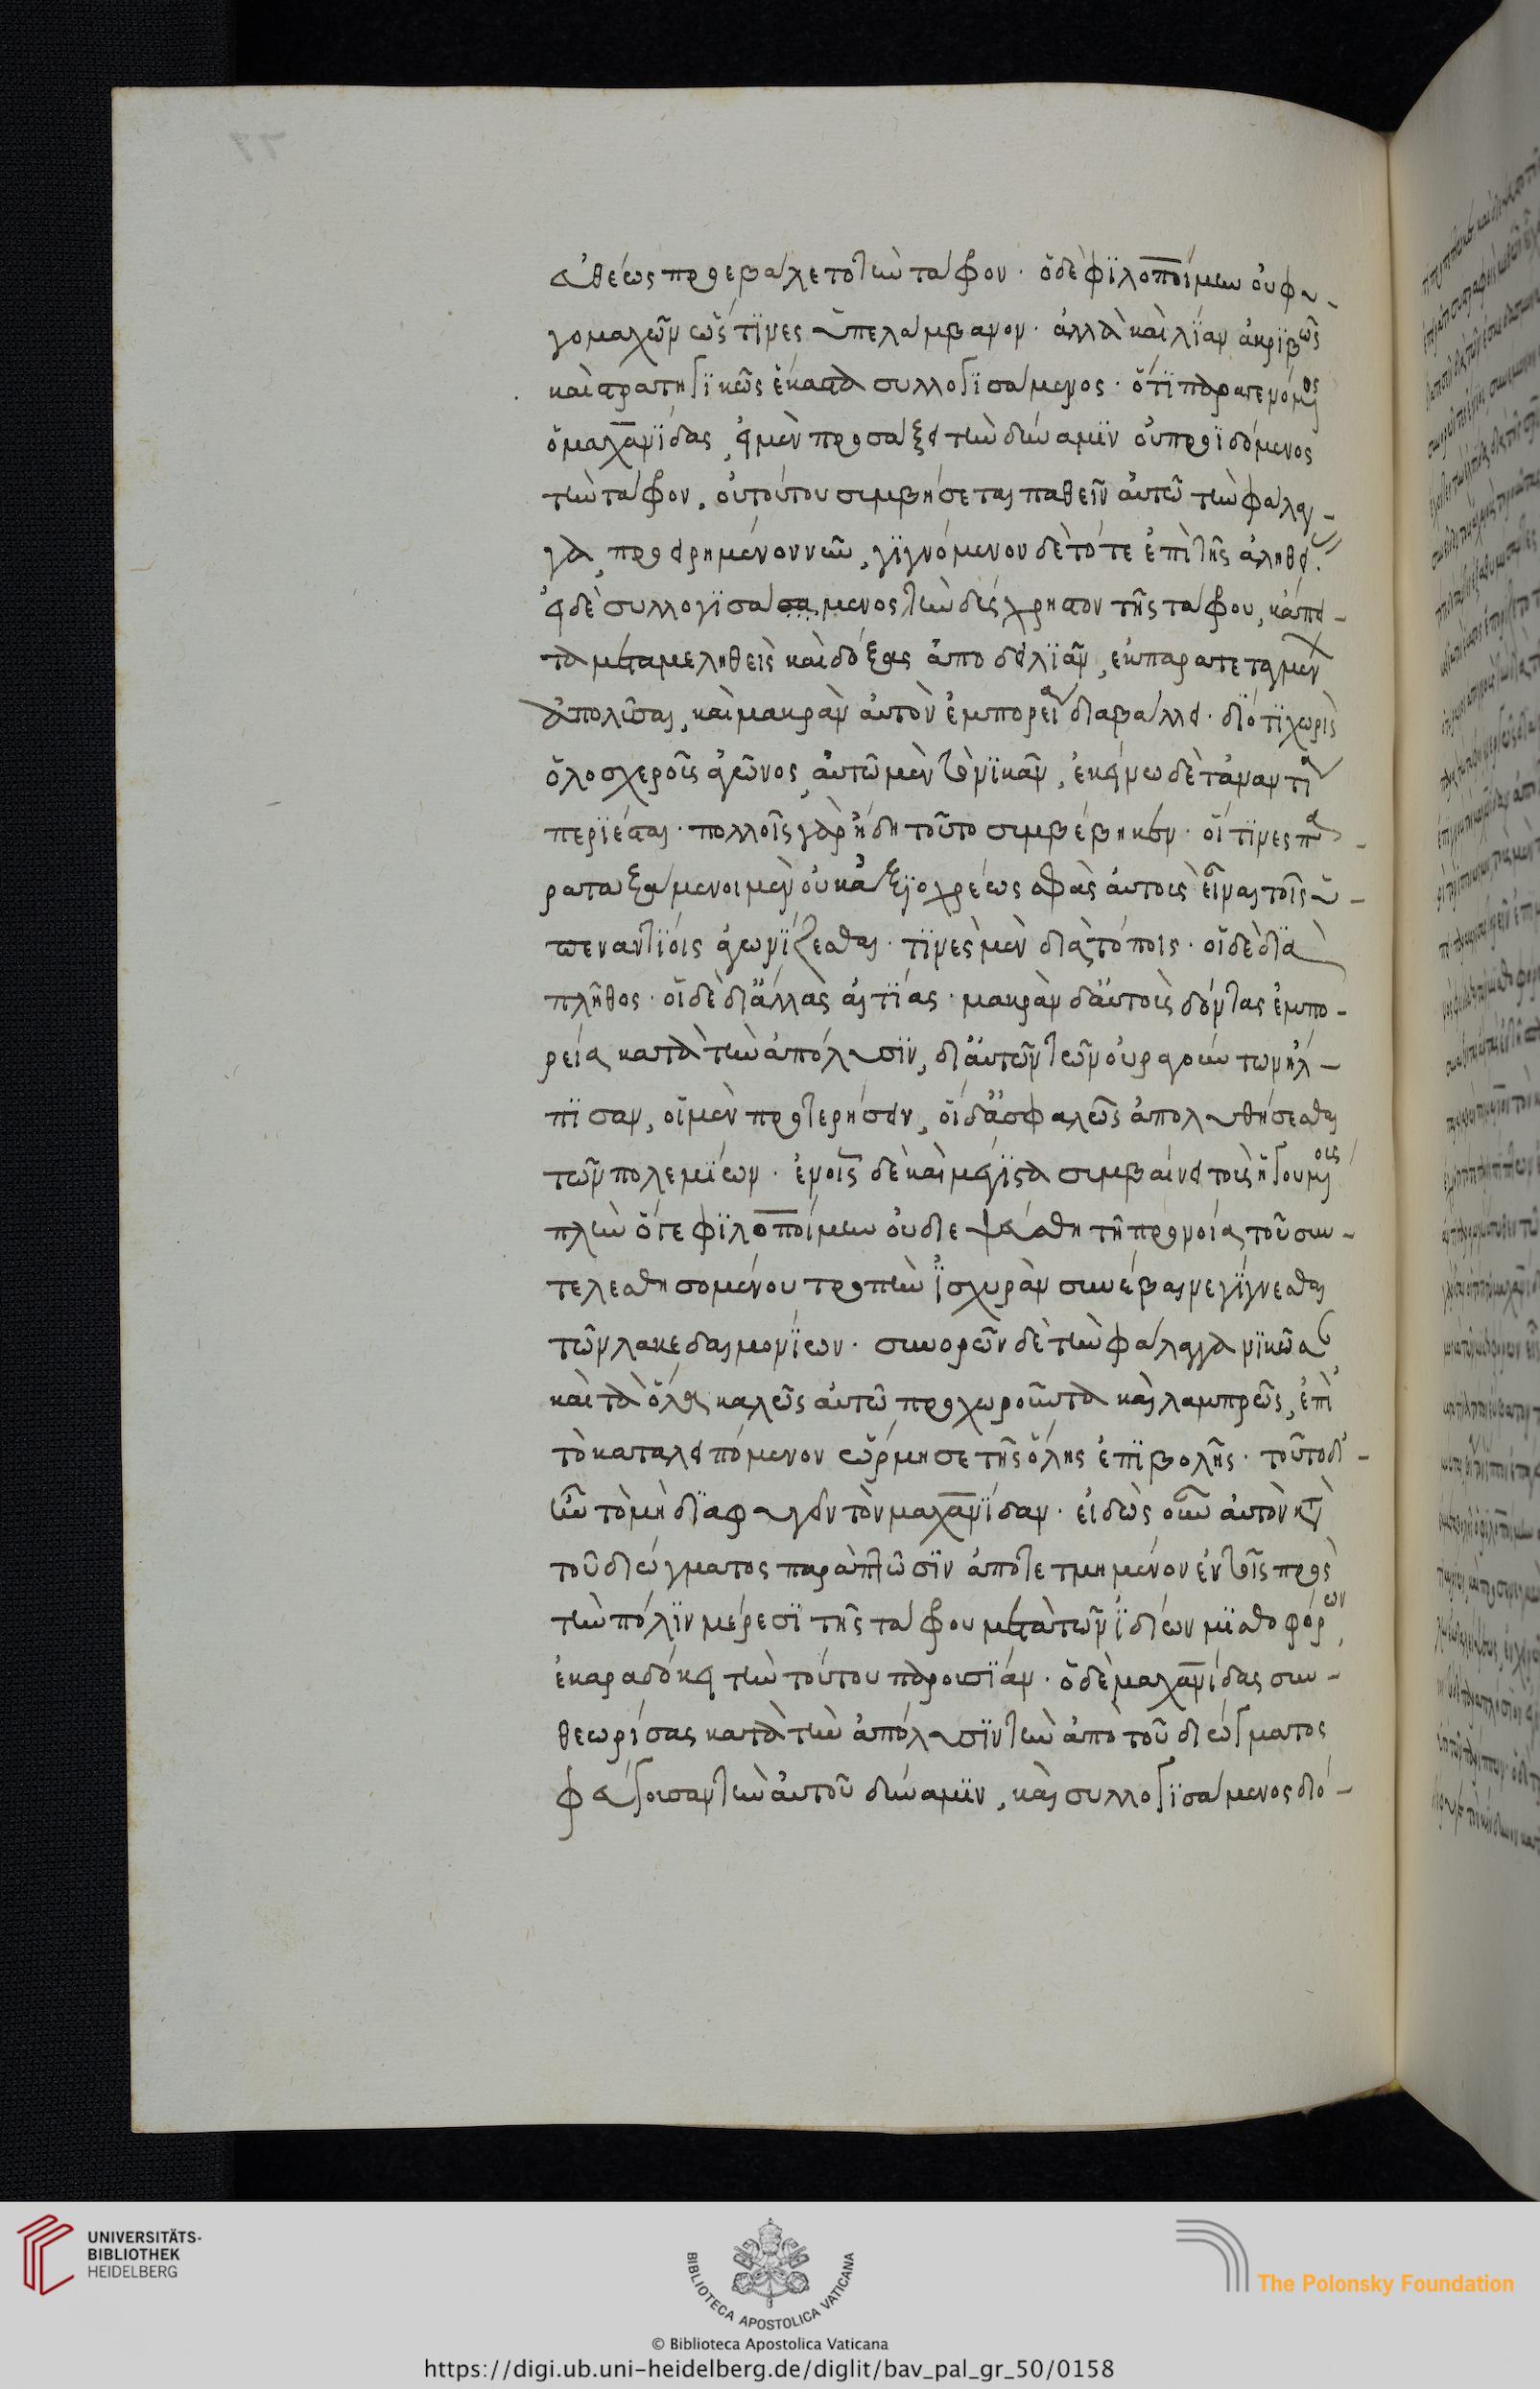 εὐθέως προεβάλετο τὴν τάφρον· ὁ δὲ φιλοποίμην οὐ φυ-
γομαχῶν ὥς τινες ὑπελάμβανον· ἀλλὰ καὶ λίαν ἀκριβῶς
καὶ στρατηγικῶς ἕκαστα συλλογισάμενος· ὅτι παραγενόμενος
ὁ μαχανίδας, εἰ μὲν προσάξει τὴν δύναμιν οὐ προϊδόμενος
τὴν τάφρον, οὕτω τούτου συμβήσεται παθεῖν αὐτῷ τὴν φάλαγ-
γα, προειρημένον νῦν, γιγνόμενον δὲ τότε ἐπὶ τῆς ἀληθείας.
εἰ δὲ συλλογισασαμενος τὴν δυσχρηστον τῆς τάφρου, κἄπει-
τα μεταμεληθεὶς καὶ δόξας ἀποδειλιᾶν, ἐκ παρατεταγμένων
ἀπολύσαι, καὶ μακρὰν αὐτὸν ἐμπορείαν διαβάλλει· διότι χωρὶς
ὁλοσχεροῦς ἀγῶνος, αὐτῷ μὲν τὸ νικᾶν, ἐκείνῳ δὲ τἀναντία
περιέσται· πολλοῖς γὰρ ἤδη τοῦτο συμβέβηκεν· οἵτινες πα-
ραταξάμενοι μὲν οὐκ ἀξιοχρέως σφᾶς αὐτοὺς εἶναι τοῖς ὑ-
πεναντίοις ἀγωνίζεσθαι· τινὲς μὲν διὰ τόποις· οἱ δὲ διὰ
πλῆθος· οἱ δὲ δι' ἄλλας αἰτίας· μακρὰν δ' αὐτοὺς δόντας ἐμπο-
ρείᾳ κατὰ τὴν ἀπόλυσιν, δι' αὐτῶν τῶν οὐραγούντων ἤλ-
πισαν, οἱ μὲν προτερήσειν, οἱ δ' ἀσφαλῶς ἀπολυθήσεσθαι
τῶν πολεμίων· ἐν οἷς δὲ καὶ μέγιστα συμβαίνει τοὺς ἡγουμένους
πλὴν ὅτε φιλοποίμην οὐ διεψεύσθη τῇ προνοίᾳ τοῦ συν-
τελεσθησομένου τροπὴν ἰσχυρὰν συνέβαινε γίγνεσθαι
τῶν λακεδαιμονίων· συνορῶν δὲ τὴν φάλαγγα νικῶσαν
καὶ τὰ ὅλα καλῶς αὐτῷ προχωροῦντα καὶ λαμπρῶς, ἐπὶ
τὸ καταλειπόμενον ὥρμησε τῆς ὅλης ἐπιβολῆς· τοῦτο δ'
ἦν τὸ μὴ διαφυγεῖν τὸν μαχανίδαν· εἰδὼς οὖν αὐτὸν κατὰ
τοῦ διώγματος παράπτωσιν ἀποτετμημένον ἐν τοῖς πρὸς
τὴν πόλιν μέρεσι τῆς τάφρου μετὰ τῶν ἰδίων μισθοφόρων,
ἐκαραδόκει τὴν τούτου παρουσίαν· ὁ δὲ μαχανίδας συν-
θεωρίσας κατὰ τὴν ἀπόλυσιν τὴν ἀπὸ τοῦ διώγματος
φεύγουσαν τὴν αὐτοῦ δύναμιν, καὶ συλλογισάμενος διό-
UNIVERSITÄTS-
BIBLIOTHEK
HEIDELBERG
BIBLIOTECA APOSTOLICA VATICANA
The Polonsky Foundation
© Biblioteca Apostolica Vaticana
https://digi.ub.uni-heidelberg.de/diglit/bav_pal_gr_50/0158